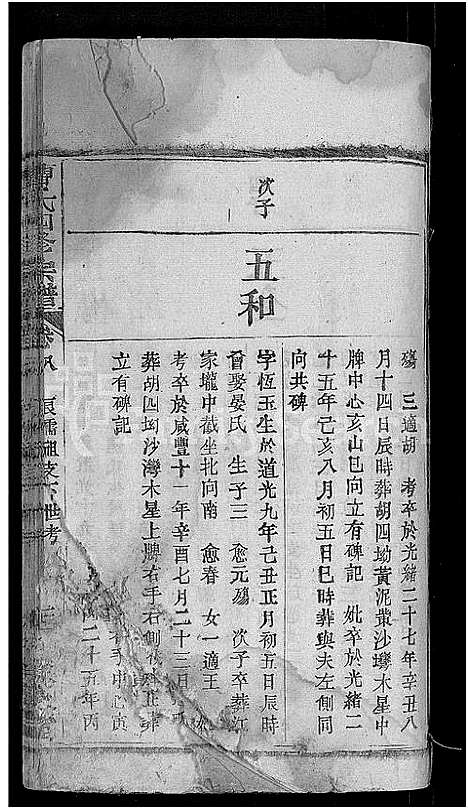 次子
五和
殤　三適胡　考卒於光緒二十七年辛丑八
月十四日辰時葬胡四坳黃泥凸沙灣木星中
牌中心亥山巳向立有碑記　妣卒於光緒二
十五年己亥八月初五日巳時葬與夫左側同
向共碑
字恆玉生於道光九年己丑正月初五日辰時
曾娶晏氏　生子三　愈元殤　次子卒葬江
家壠中截坐北向南　愈春　女一適王
考卒於咸豐十一年辛酉七月二十三日
葬胡四坳沙灣木星上牌右手右側
立有碑記
右手中心寅
二十五年丙
曹氏四修宗譜
卷八